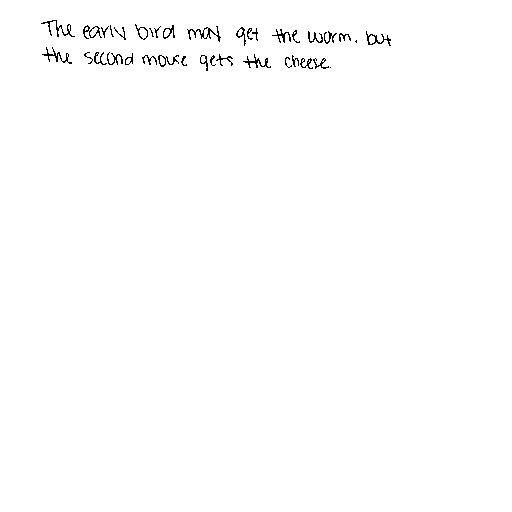 The early bird may get the worm. but
the second mouse gets the cheese.